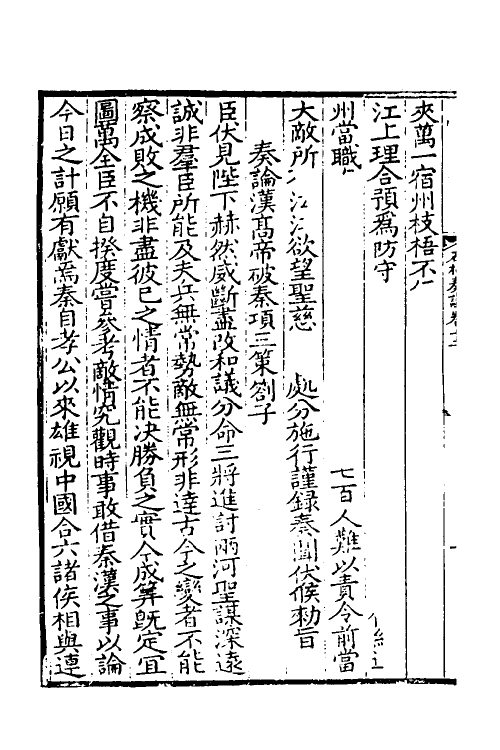 夾萬一宿州枝梧不
江上理合預爲防守
州當職 七百人難以責令前當
大敵所 欲望聖慈 處分施行謹録奏聞伏候勑旨
奏論漢髙帝破秦項三策劄子
臣伏見陛下赫然威斷盡改和議分命三將進討兩河聖謀深遠
誠非羣臣所能及夫兵無常勢敵無常形非達古今之變者不能
察成敗之機非盡彼已之情者不能决勝負之實今成筭旣定宜
圖萬全臣不自揆度嘗參考敵情究觀時事敢借秦漢之事以論
今日之計願有獻焉秦自孝公以來雄視中國合六諸侯相與連